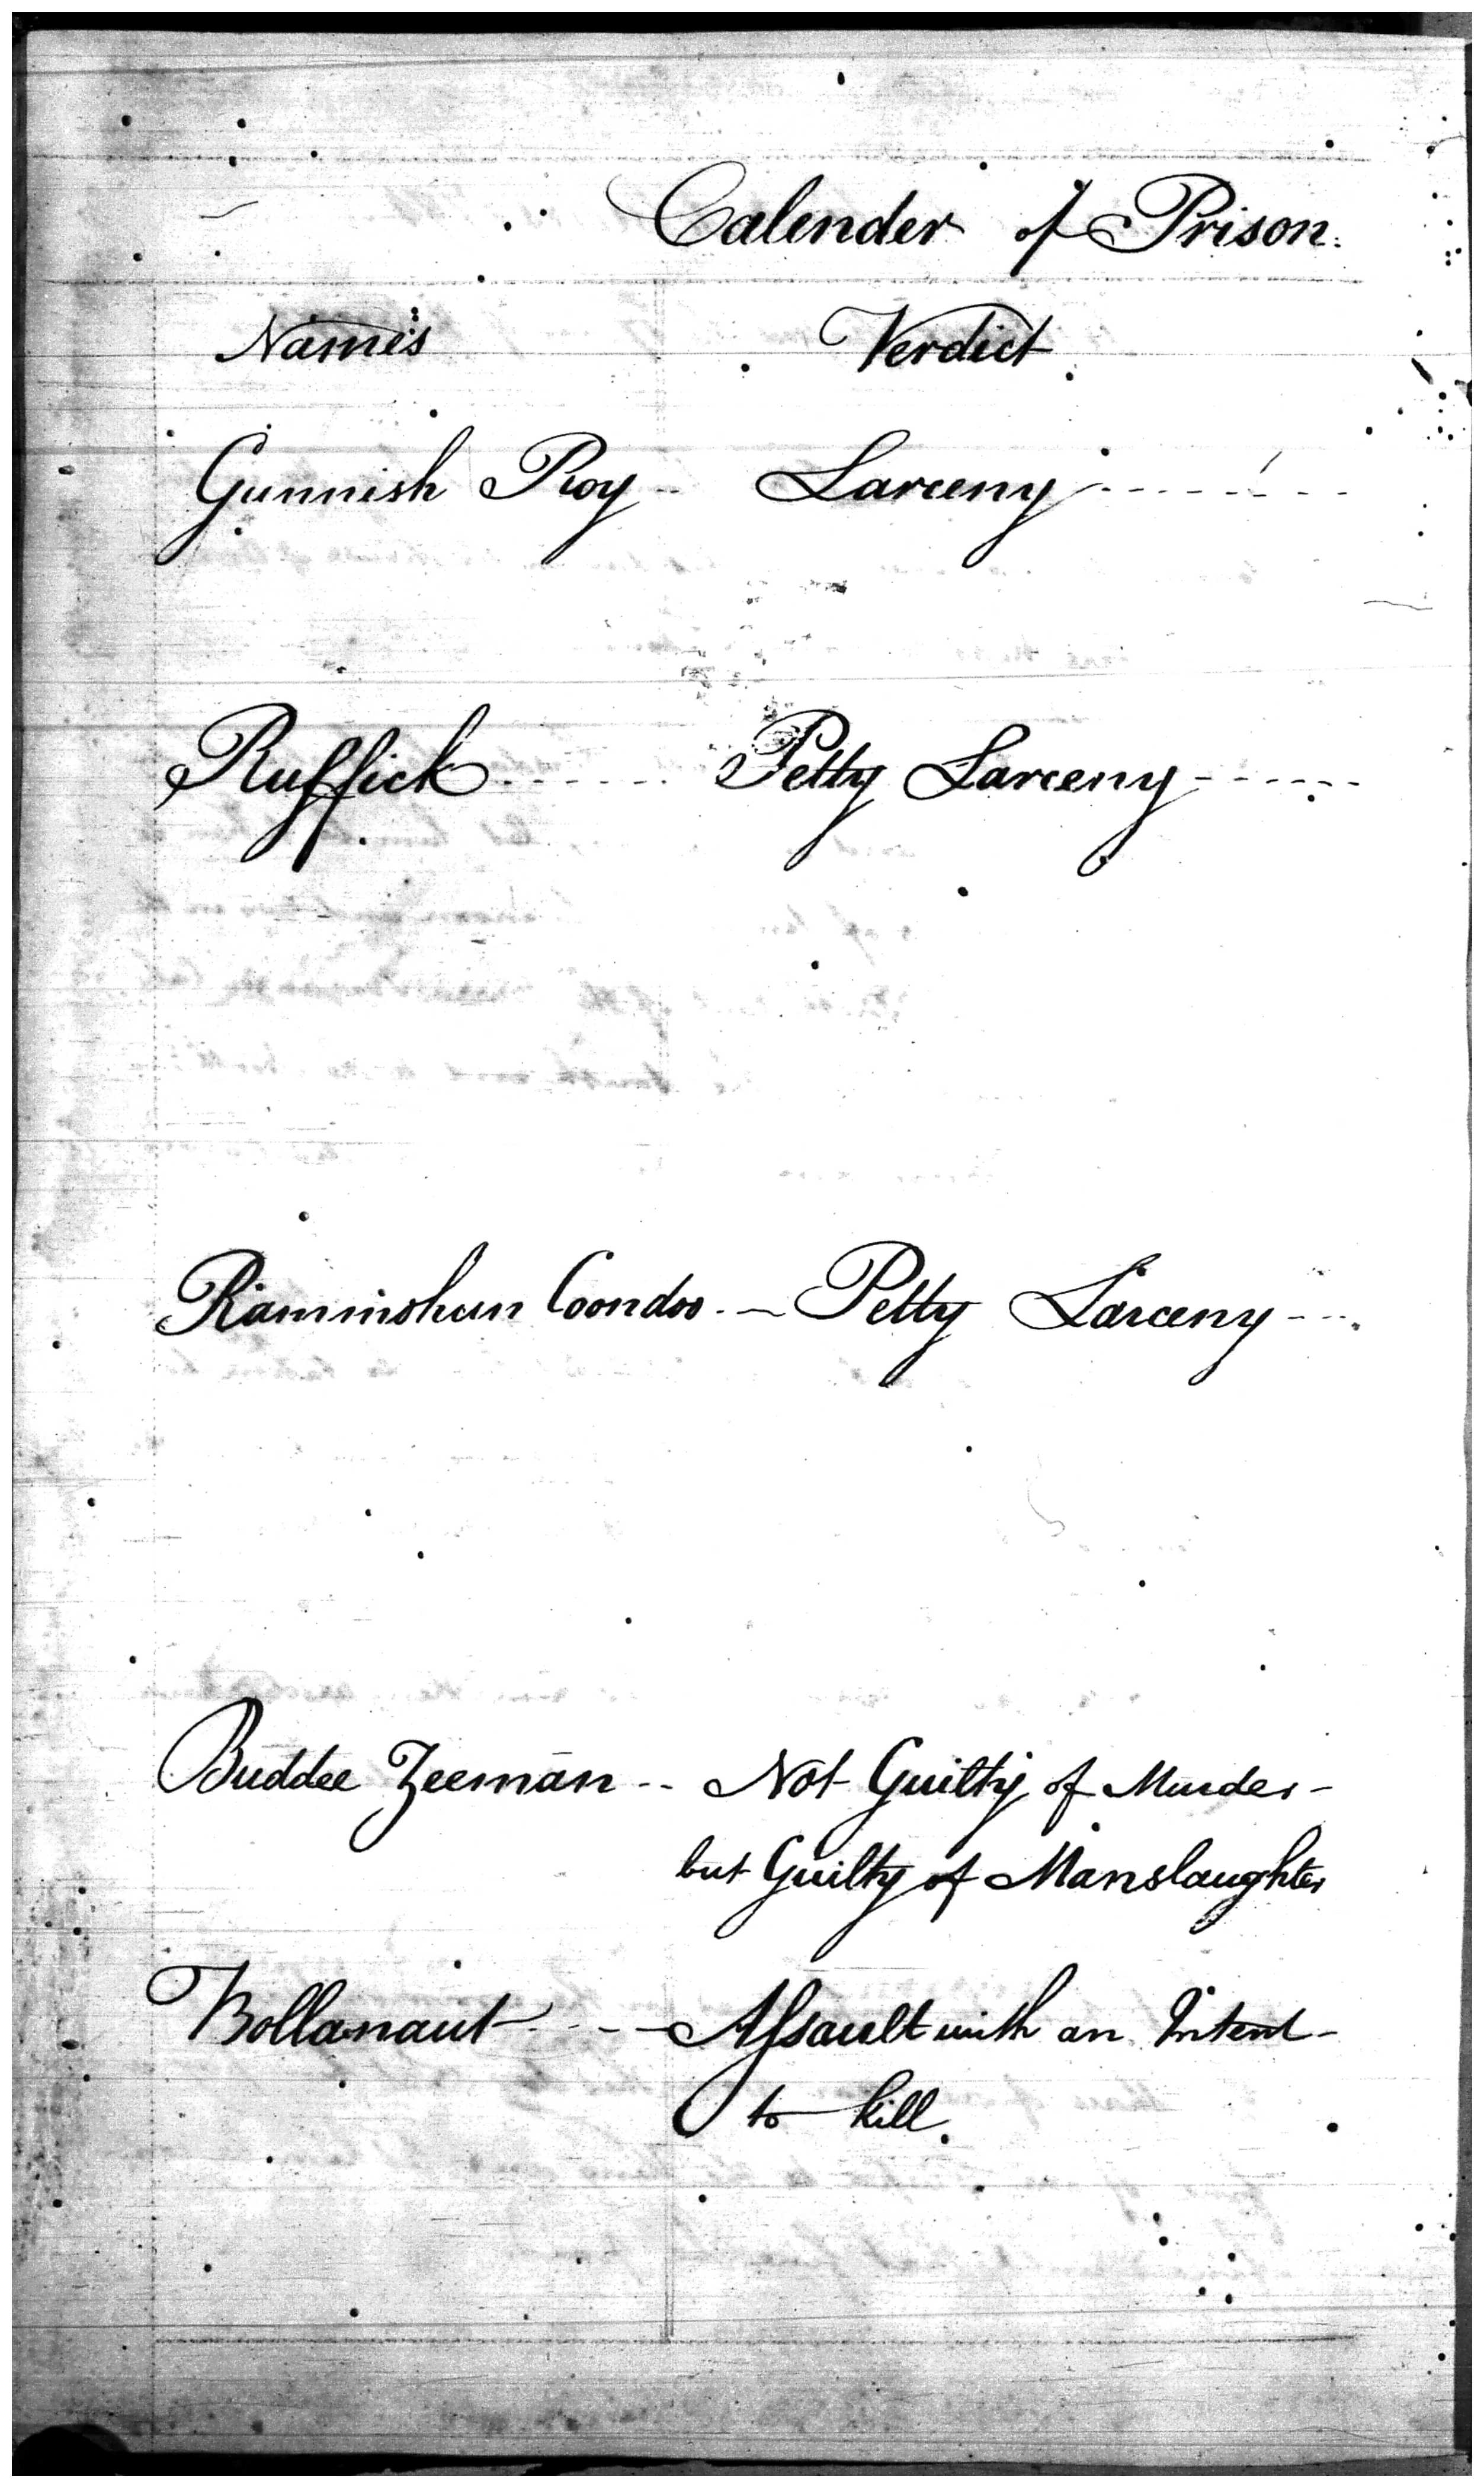 Calender of Prison
Names Verdict
Gunnish Roy -- Larceny -------
Ruffick ------ Petty Larceny ------
Rammohun Coondoo -- Petty Larceny ---
Buddee Zeeman -- Not Guilty of Murder -
but Guilty of Manslaughter
Bollanaut ---- Assault with an Intent -
to kill.